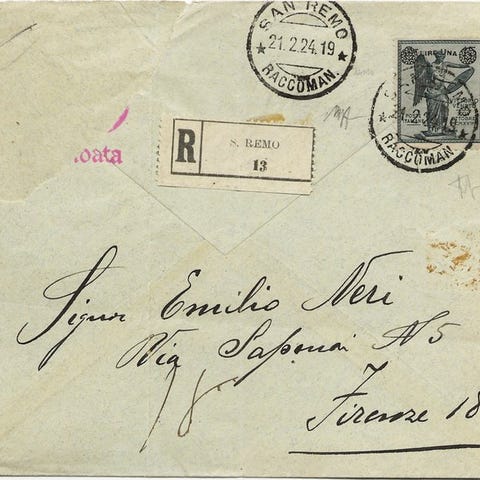 SAN REMO
21.2.24.19
RACCOMAN.
LIRE UNA
RACCOMAN.
.oata
R
S. REMO
13
Signor Emilio Neri
Via Saponai N 5
18
Firenze 18